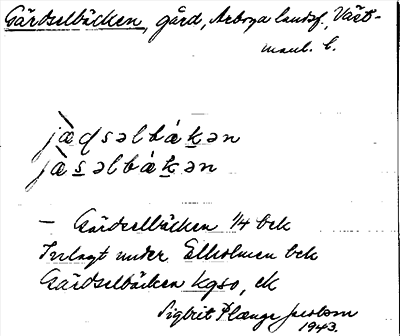 Gärdselbäcken, gård, Arboga landsf., Väst-
manl. l.
jæ̀dsəlbákən
jæ̀səlbákən
— Gärdselbäcken 1/4 bek
Inlagt under Ellholmen bek
Gärdselbäcken kgso, ek
Sigbrit Plænge Jacobson
1943.